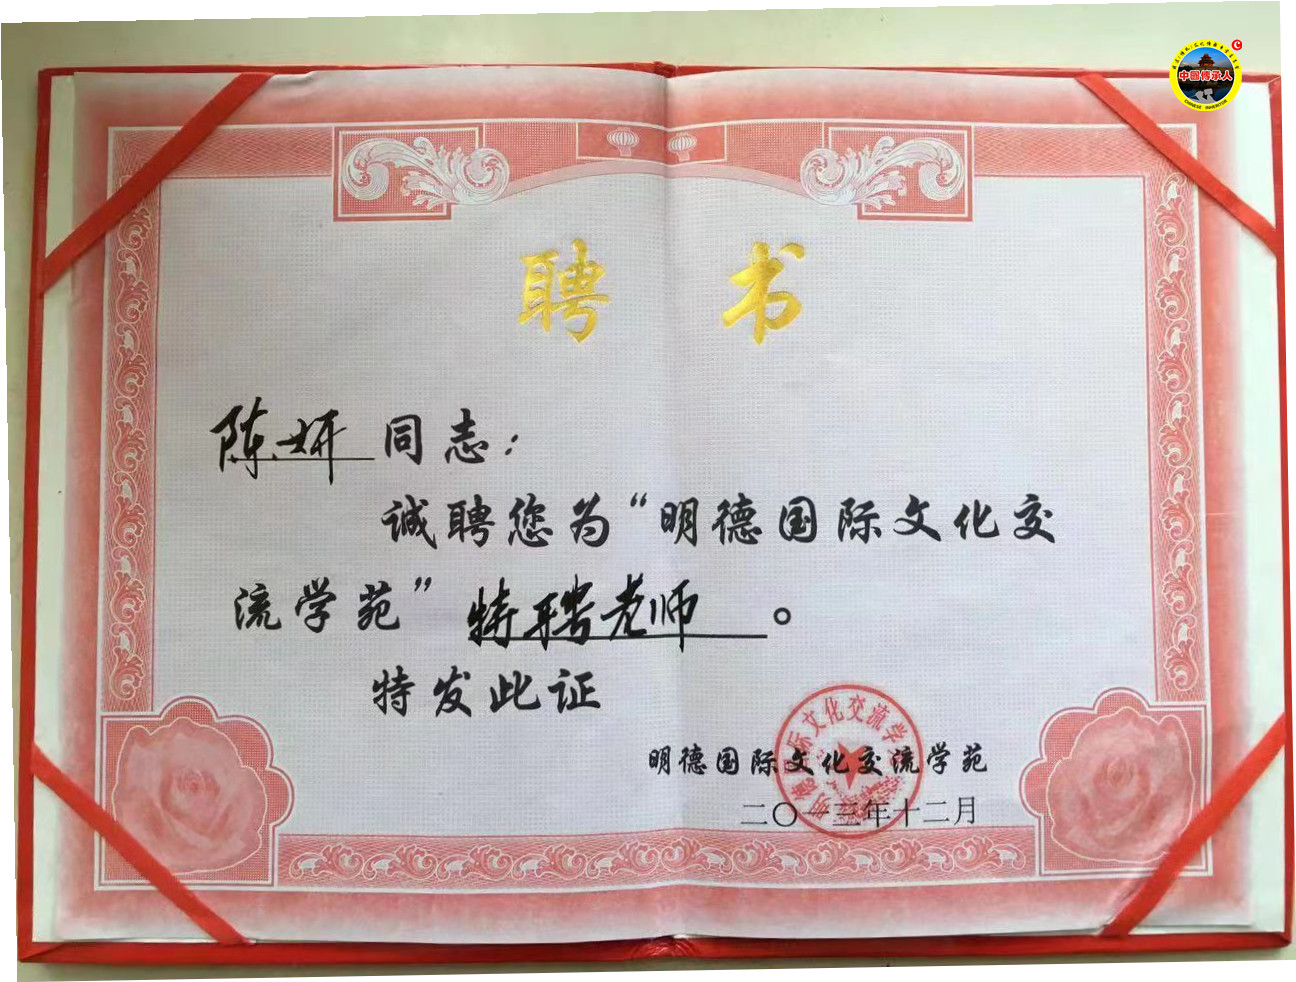 中國傳承人
CHINESE INHERITOR
聘书
陈妍同志：
诚聘您为“明德国际文化交
流学苑”特聘老师。
特发此证
明德国际文化交流学苑
二〇一三年十二月
明德国际文化交流学